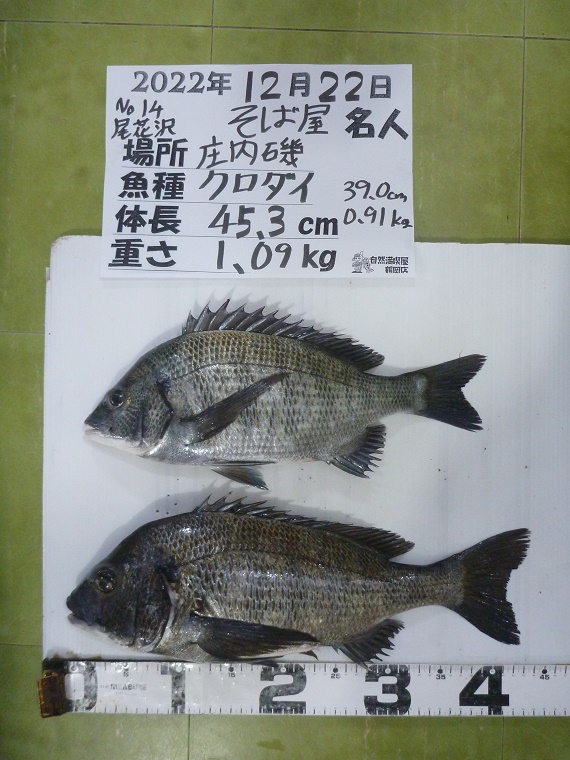 2022年 12月22日
No 14
尾花沢 そば屋 名人
場所 庄内磯
魚種 クロダイ 39.0cm
体長 45.3 cm 0.91kg
重さ 1.09kg
自然満喫屋
鶴岡店
0 5 1 15 2 25 3 35 4 45